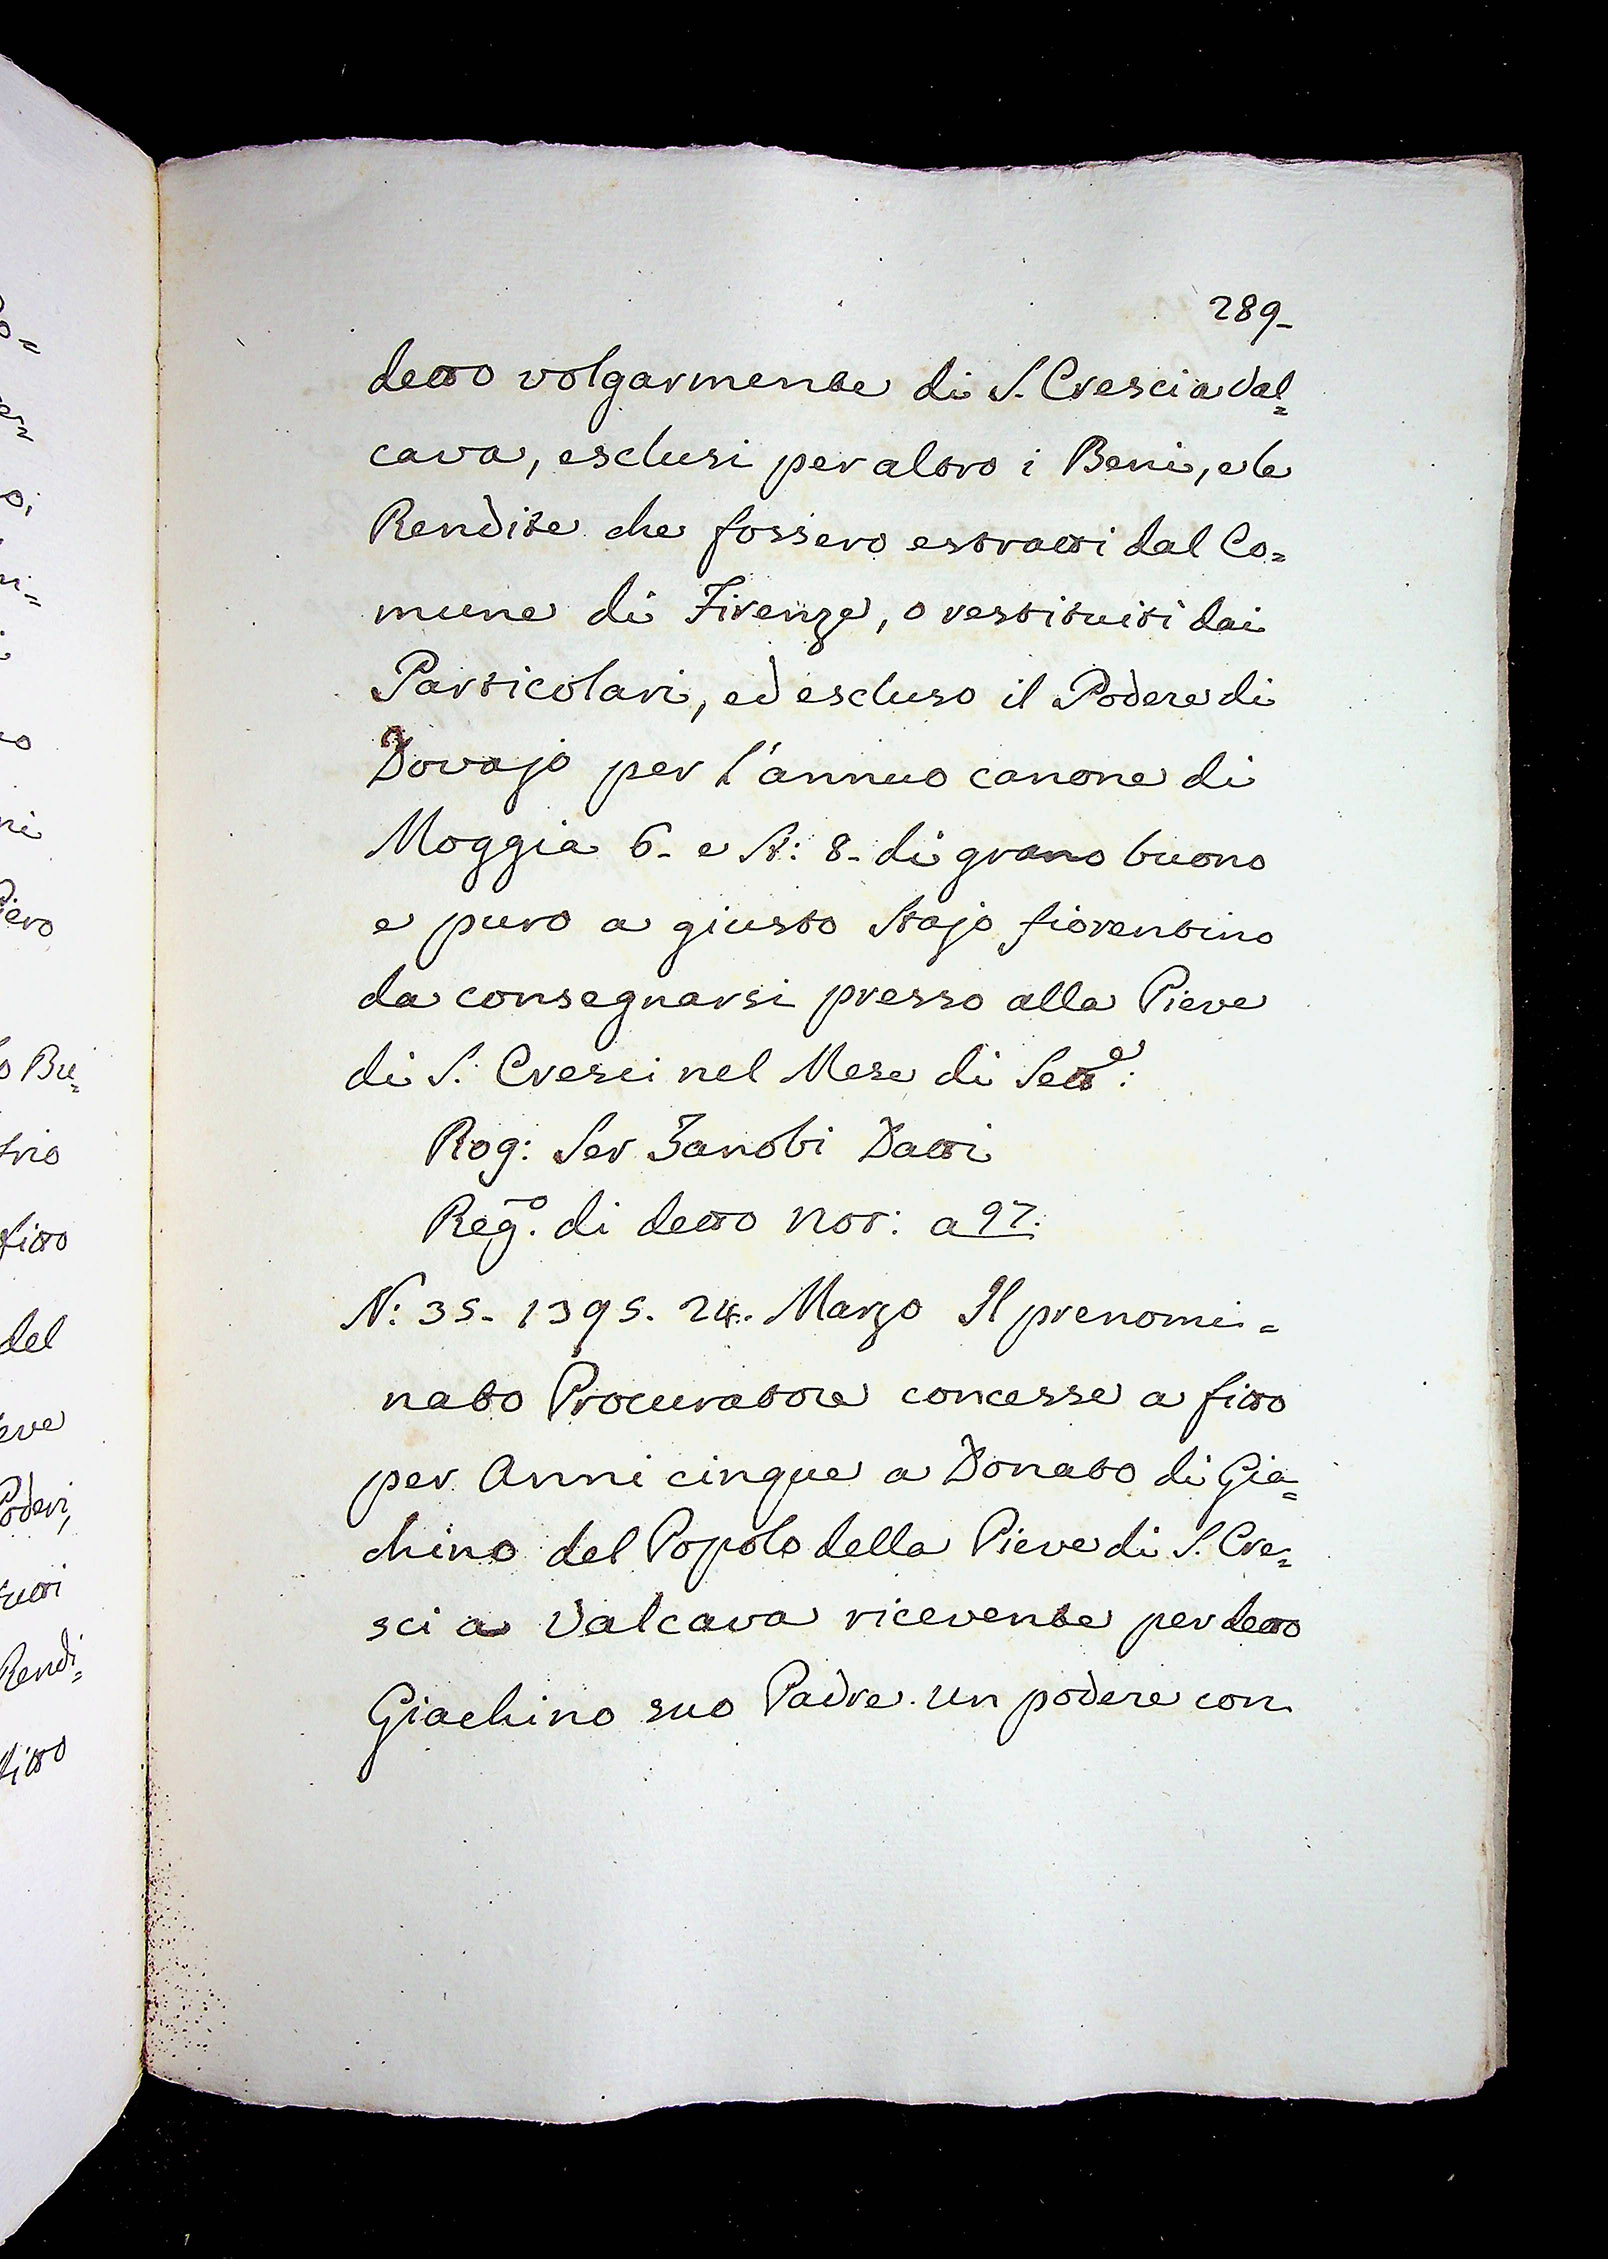 289-
detto volgarmente di S. Cresci a Val=
cava, esclusi per altro i Beni, e le
Rendite che fossero estratti dal Co=
mune di Firenze, o restituiti dai
Particolari, ed escluso il Podere di
Dovajo per l'annuo canone di
Moggia 6- e St: 8- di grano buono
e puro a giusto Stajo fiorentino
da consegnarsi presso alla Pieve
di S. Cresci nel Mese di Sett.e:
Rog: Ser Zanobi Datti
Reg.o di detto Not: a 97.
N: 35- 1395. 24. Marzo Il prenomi=
nato Procuratore concesse a fitto
per Anni cinque a Donato di Gia=
chino del Popolo della Pieve di S. Cre=
sci a Valcava ricevente per detto
Giachino suo Padre un podere con